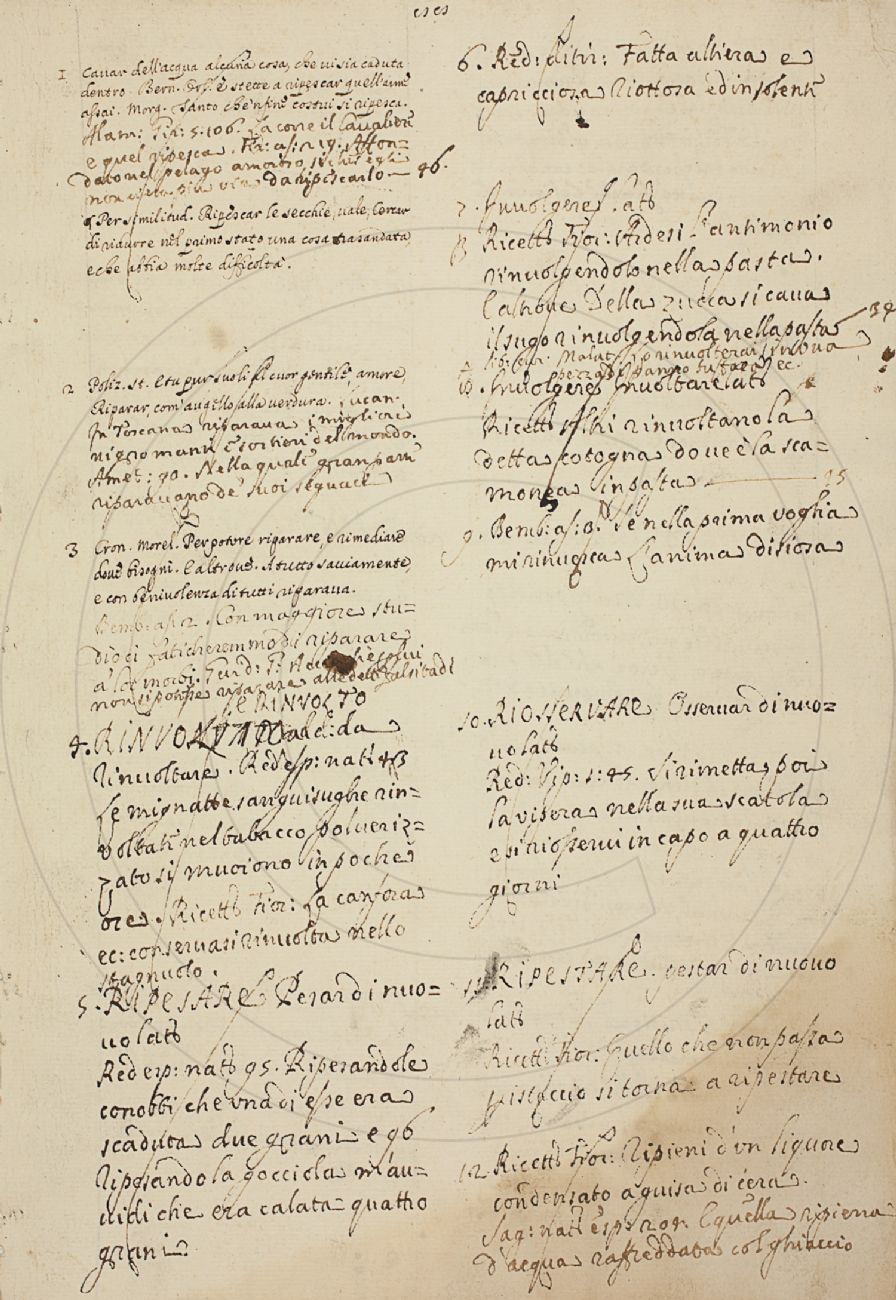 1 Cavar dell'acqua alcuna cosa, che vi sia caduta
dentro. Bern. Orl. e stette a ripescar quell'arme
assai. Morg. Santo che'nfine costui si ripesca.
Alam: Gir: 5. 106. La corre il Cavaliere
e quel ripesca. Fir: as: 219. Affon=
dato nel pelago amoroso, si che egli
non via da ripescarlo — 46.
¶ Per similitud. Ripescar le secchie, vale, Cercar
di ridurre nel primo stato una cosa trasandata,
e che abbia molte difficoltà.
2 Poliz. st. E tu pur suoli al cuor gentile, amore,
Riparar, com'augello alla verdura. Lucan.
In Toscana riparava i migliori
nigromanti e sortieri del mondo.
Amet: 90. Nella quale gran parte
riparavano de' suoi seguaci
3 Cron. Morel. Per potere riparare, e rimediare
dove bisogni. E altrove. A tutto saviamente,
e con benivolenza di tutti riparava.
Bemb: as: 2. Con maggiore stu=
dio ci faticheremmo di riparare
a' lor morsi. Guid: G:
non si potesse riparare alle dette falsitadi
e RINVOLTO
4. RINVOLTATO add: da
Rinvoltare. Red: esp: nat: 43
Le mignatte, sanguisughe rin=
voltate nel tabacco polveriz=
zato si muoiono in poche
ore. Ricett: Fior: La canfora
ec: conservasi rinvolta nello
stagnuolo.
5. RIPESARE. Pesar di nuo=
vo lat:
Red: esp: nat: 95. Ripesandole
conobbi che una di esse era
scaduta due grani e 96
Riposando la gocciola m'av=
vidi che era calata quattro
grani
6. Red: ditir: Fatta altiera e
capricciosa riottosa ed insolente
7. Involgere. lat:
8 Ricett: Fior: Ardesi l'antimonio
rinvolgendolo nella pasta.
E altrove Della zucca si cava
il sugo rinvolgendola nella pasta — 34
Involgere Involtare lat:
Ricett: Altri rinvoltano la
detta cotogna dove è la sca=
monea in pasta — 25
9. Bemb: as: 8. Se nella prima voglia
mi rinvesca L'anima disiosa
10. RIOSSERVARE. Osservar di nuo=
vo lat:
Red: Vip: 1: 45. Si rimetta poi
la vipera nella sua scatola
e si riosservi in capo a quattro
giorni
11. RIPESTARE. pestar di nuovo
lat:
Ricett: Fior: Quello che non passa
pistuccio si torna a ripestare
12. Ricett: Fior: Ripieni d'un liquore
condensato a guisa di cera.
Sag: nat: esp: 209. E quella ripiena
d'acqua raffreddata col ghiaccio